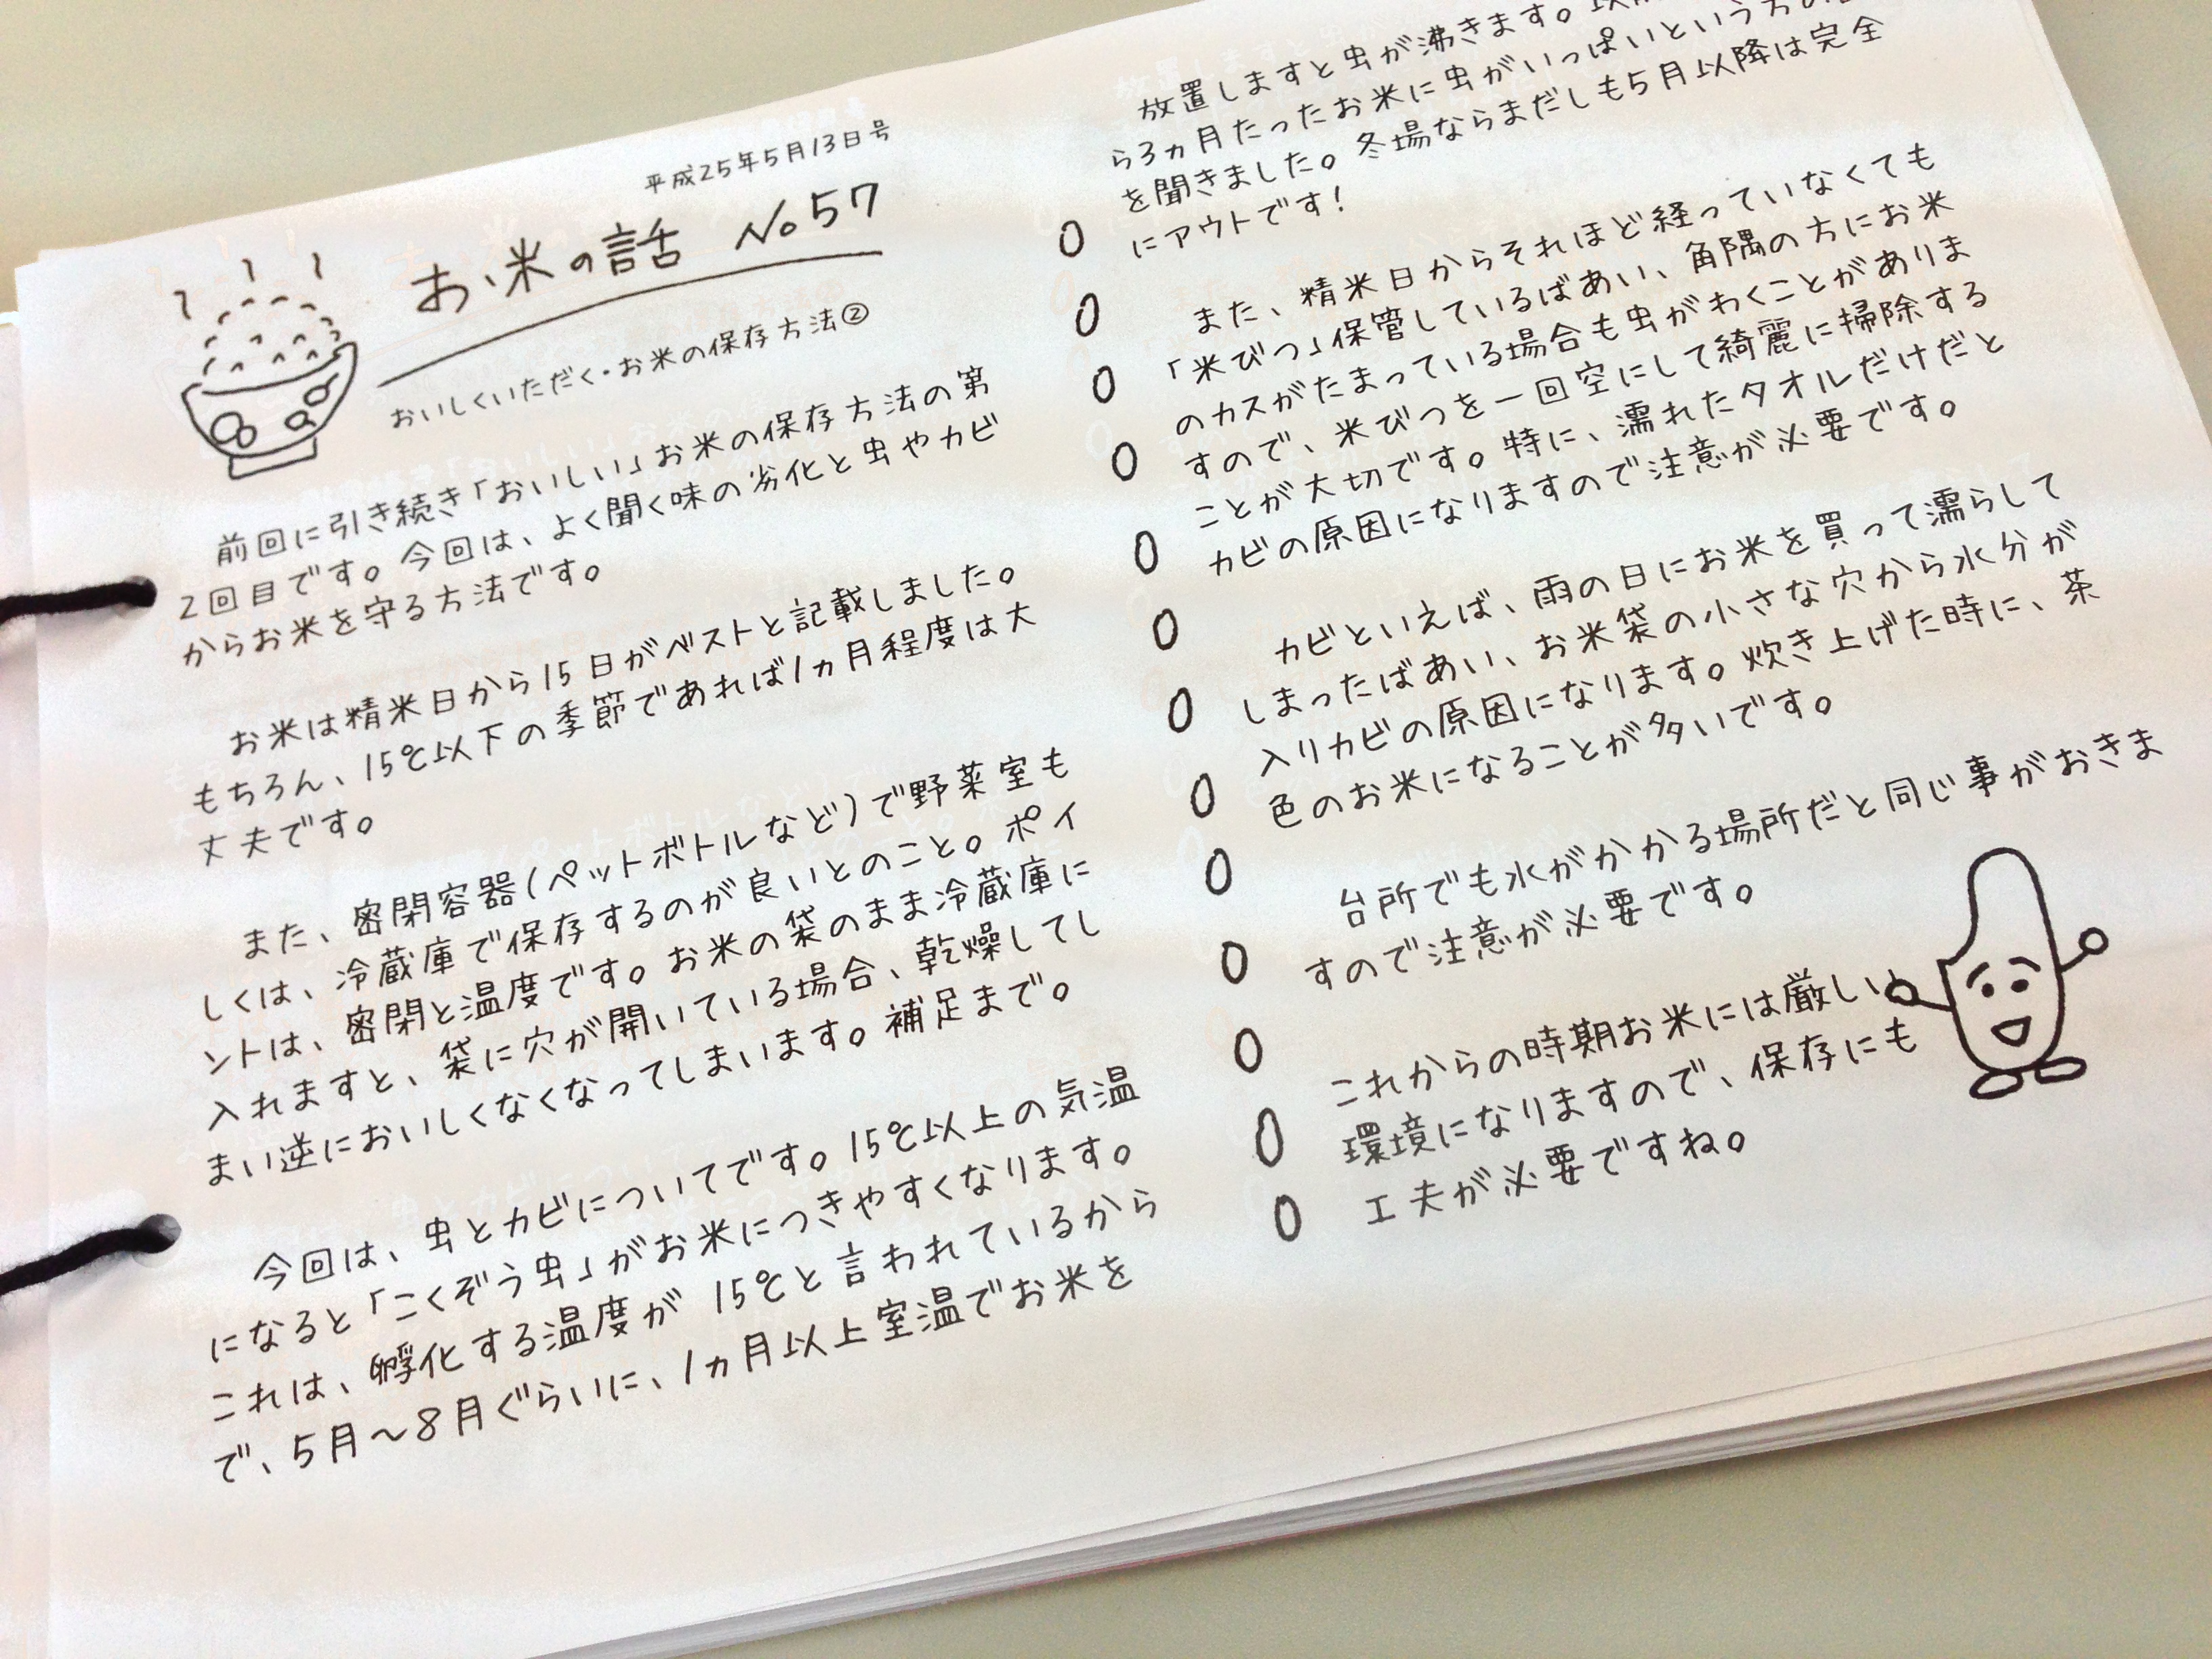 平成25年5月13日号
お米の話 No57
おいしくいただく・お米の保存方法②
前回に引き続き「おいしい」お米の保存方法の第
2回目です。今回は、よく聞く味の劣化と虫やカビ
からお米を守る方法です。
お米は精米日から15日がベストと記載しました。
もちろん、15℃以下の季節であれば1ヵ月程度は大
丈夫です。
また、密閉容器(ペットボトルなど)で野菜室も
しくは、冷蔵庫で保存するのが良いとのこと。ポイ
ントは、密閉と温度です。お米の袋のまま冷蔵庫に
入れますと、袋に穴が開いている場合、乾燥してし
まい逆においしくなくなってしまいます。補足まで。
今回は、虫とカビについてです。15℃以上の気温
になると「こくぞう虫」がお米につきやすくなります。
これは、孵化する温度が15℃と言われているから
で、5月〜8月ぐらいに、1ヵ月以上室温でお米を
放置しますと虫が沸きます。
ら3ヵ月たったお米に虫がいっぱいという方の
を聞きました。冬場ならまだしも5月以降は完全
にアウトです!
また、精米日からそれほど経っていなくても
「米びつ」保管しているばあい、角隅の方にお米
のカスがたまっている場合も虫がわくことがありま
すので、米びつを一回空にして綺麗に掃除する
ことが大切です。特に、濡れたタオルだけだと
カビの原因になりますので注意が必要です。
カビといえば、雨の日にお米を買って濡らして
しまったばあい、お米袋の小さな穴から水分が
入りカビの原因になります。炊き上げた時に、茶
色のお米になることが多いです。
台所でも水がかかる場所だと同じ事がおきま
すので注意が必要です。
これからの時期お米には厳しい
環境になりますので、保存にも
工夫が必要ですね。